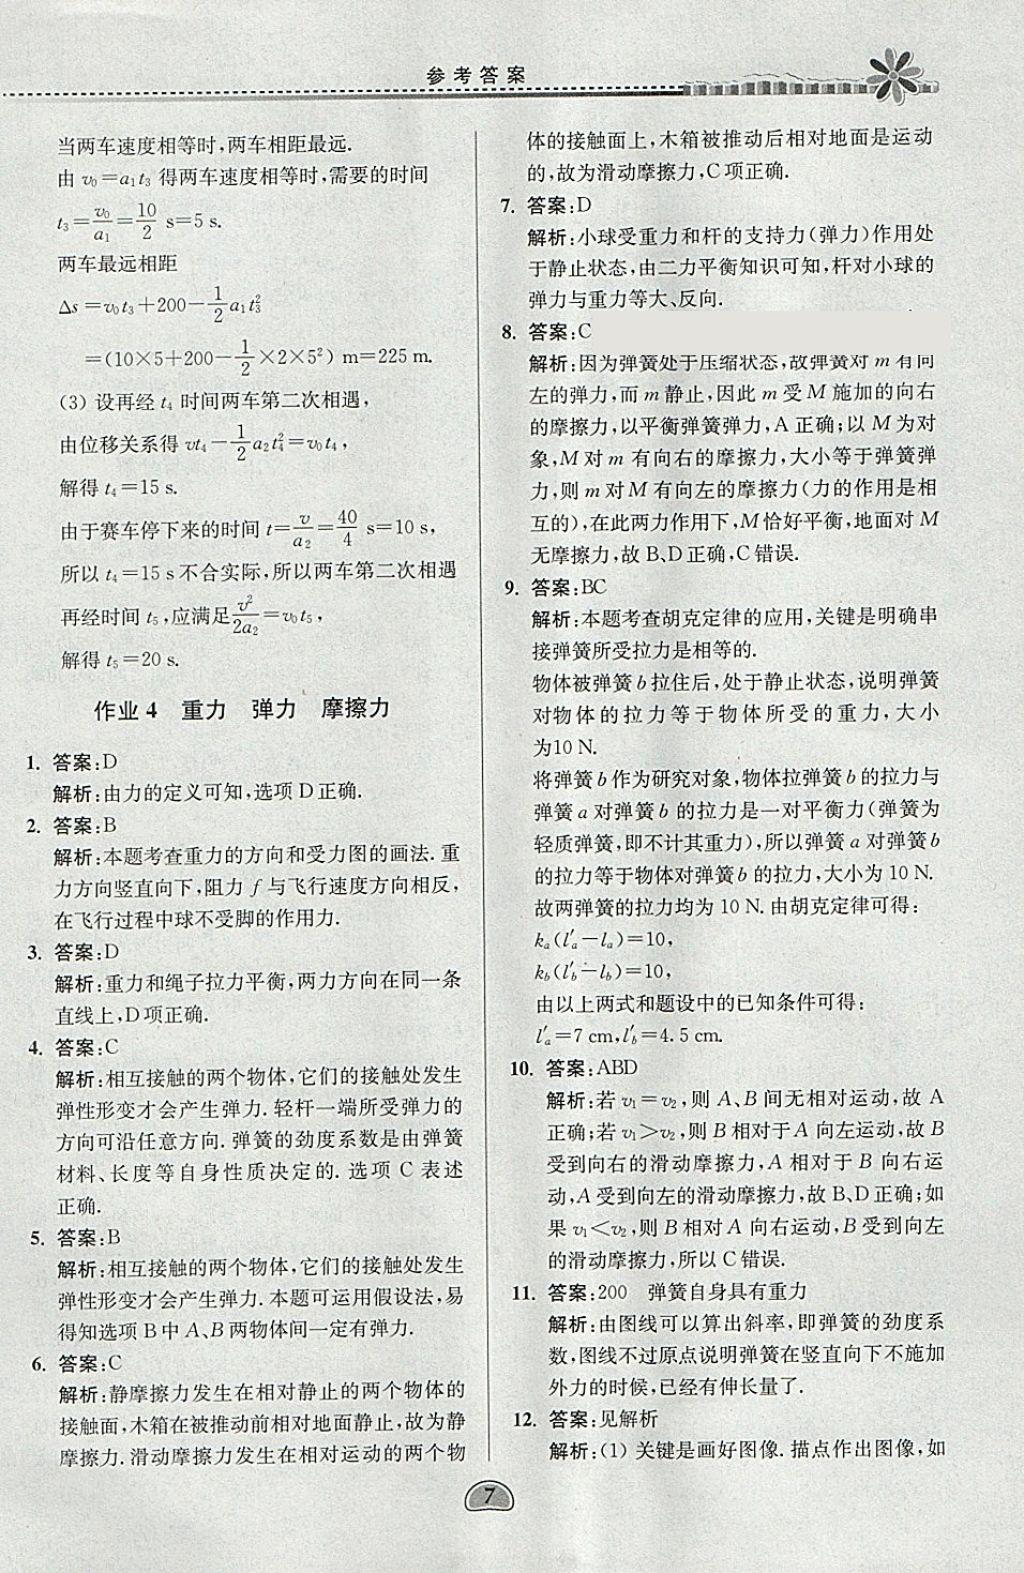 参考答案
当两车速度相等时,两车相距最远.
由 v₀=a₁t₃ 得两车速度相等时,需要的时间
t₃=v₀/a₁=10/2 s=5 s.
两车最远相距
Δs=v₀t₃+200-1/2a₁t₃²
=(10×5+200-1/2×2×5²) m=225 m.
(3) 设再经 t₄ 时间两车第二次相遇,
由位移关系得 vt₄-1/2a₂t₄²=v₀t₄,
解得 t₄=15 s.
由于赛车停下来的时间 t=v/a₂=40/4 s=10 s,
所以 t₄=15 s不合实际,所以两车第二次相遇
再经时间 t₅,应满足v²/2a₂=v₀t₅,
解得 t₅=20 s.
作业 4 重力 弹力 摩擦力
1. 答案:D
解析:由力的定义可知,选项D正确.
2. 答案:B
解析:本题考查重力的方向和受力图的画法.重
力方向竖直向下,阻力 f 与飞行速度方向相反,
在飞行过程中球不受脚的作用力.
3. 答案:D
解析:重力和绳子拉力平衡,两力方向在同一条
直线上,D项正确.
4. 答案:C
解析:相互接触的两个物体,它们的接触处发生
弹性形变才会产生弹力.轻杆一端所受弹力的
方向可沿任意方向.弹簧的劲度系数是由弹簧
材料、长度等自身性质决定的.选项 C 表述
正确.
5. 答案:B
解析:相互接触的两个物体,它们的接触处发生
弹性形变才会产生弹力.本题可运用假设法,易
得知选项B中A、B两物体间一定有弹力.
6. 答案:C
解析:静摩擦力发生在相对静止的两个物体的
接触面,木箱在被推动前相对地面静止,故为静
摩擦力.滑动摩擦力发生在相对运动的两个物
体的接触面上,木箱被推动后相对地面是运动
的,故为滑动摩擦力,C项正确.
7. 答案:D
解析:小球受重力和杆的支持力(弹力)作用处
于静止状态,由二力平衡知识可知,杆对小球的
弹力与重力等大、反向.
8. 答案:C
解析:因为弹簧处于压缩状态,故弹簧对 m 有向
左的弹力,而 m 静止,因此 m 受 M 施加的向右
的摩擦力,以平衡弹簧弹力,A 正确;以 M 为对
象,M 对 m 有向右的摩擦力,大小等于弹簧弹
力,则 m 对 M 有向左的摩擦力(力的作用是相
互的),在此两力作用下,M恰好平衡,地面对 M
无摩擦力,故 B、D正确,C 错误.
9. 答案:BC
解析:本题考查胡克定律的应用,关键是明确串
接弹簧所受拉力是相等的.
物体被弹簧b拉住后,处于静止状态,说明弹簧
对物体的拉力等于物体所受的重力,大小
为10 N.
将弹簧 b 作为研究对象,物体拉弹簧 b 的拉力与
弹簧 a 对弹簧 b 的拉力是一对平衡力(弹簧为
轻质弹簧,即不计其重力),所以弹簧 a 对弹簧 b
的拉力等于物体对弹簧 b 的拉力,大小为 10 N.
故两弹簧的拉力均为 10 N.由胡克定律可得:
kₐ(l′ₐ-lₐ)=10,
k_b(l′_b-l_b)=10,
由以上两式和题设中的已知条件可得:
l′ₐ=7 cm,l′_b=4.5 cm.
10. 答案:ABD
解析:若 v₁=v₂,则 A、B 间无相对运动,故 A
正确;若 v₁>v₂,则 B 相对于 A 向左运动,故 B
受到向右的滑动摩擦力,A 相对于 B 向右运
动,A 受到向左的滑动摩擦力,故 B、D正确;如
果 v₁<v₂,则 B 相对 A 向右运动,B 受到向左
的滑动摩擦力,所以 C 错误.
11. 答案:200 弹簧自身具有重力
解析:由图线可以算出斜率,即弹簧的劲度系
数,图线不过原点说明弹簧在竖直向下不施加
外力的时候,已经有伸长量了.
12. 答案:见解析
解析:(1) 关键是画好图像.描点作出图像,如
7